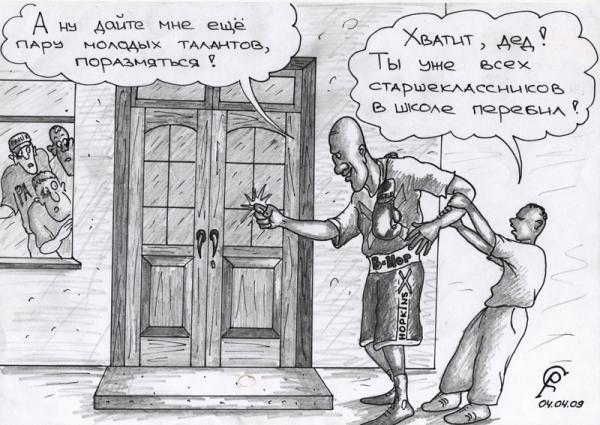 А ну дайте мне ещё
пару молодых талантов,
поразмяться!
Хватит, дед!
Ты уже всех
старшеклассников
в школе перебил!
B-Hop
HOPKINS
X
04.04.09